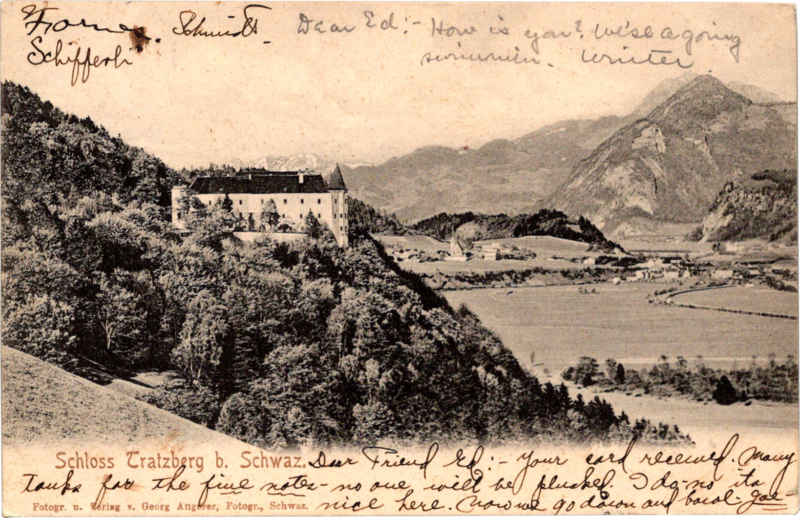 Schmidt.
Schifferl
Dear Ed:- How is you? We'se agoing
swimmin. Winter.
Schloss Tratzberg b. Schwaz.
Dear Friend Ed:- Your card received. Many
tanks for the fine notes- no one will be plucked. I da-no ita
Fotogr. u. Verlag v. Georg Angerer, Fotogr., Schwaz.
nice here. Now we go down and